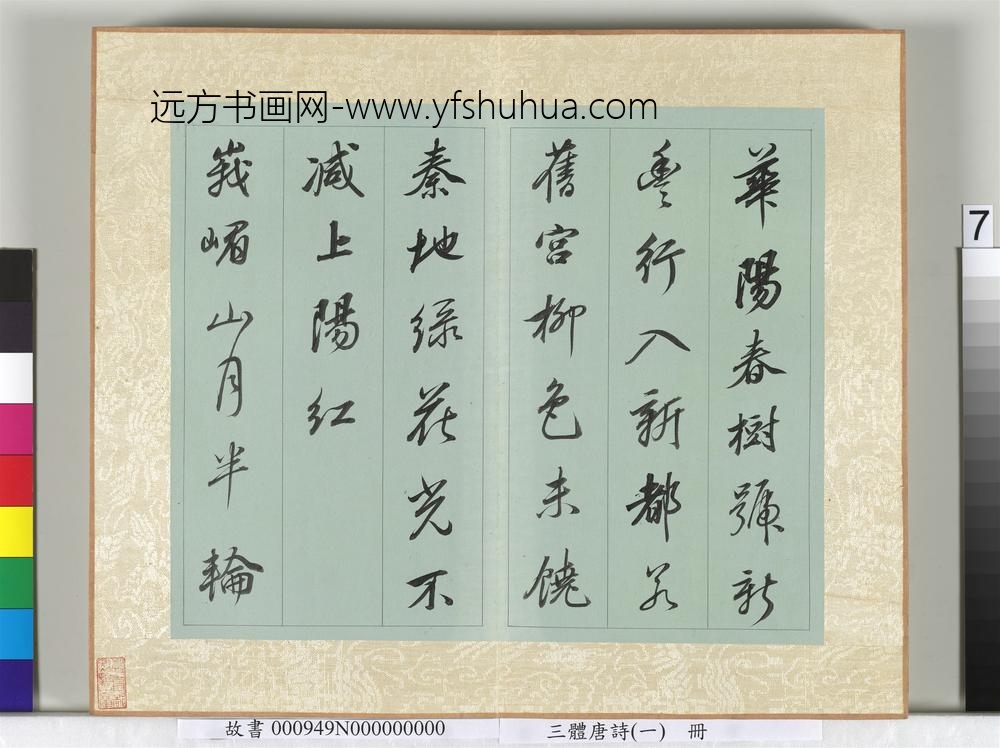 远方书画网-www.yfshuhua.com
華陽春樹號新
豐行入新都若
舊宮柳色未饒
秦地绿花光不
减上陽红
峩嵋山月半輪
7
故書 000949N000000000
三體唐詩(一) 冊